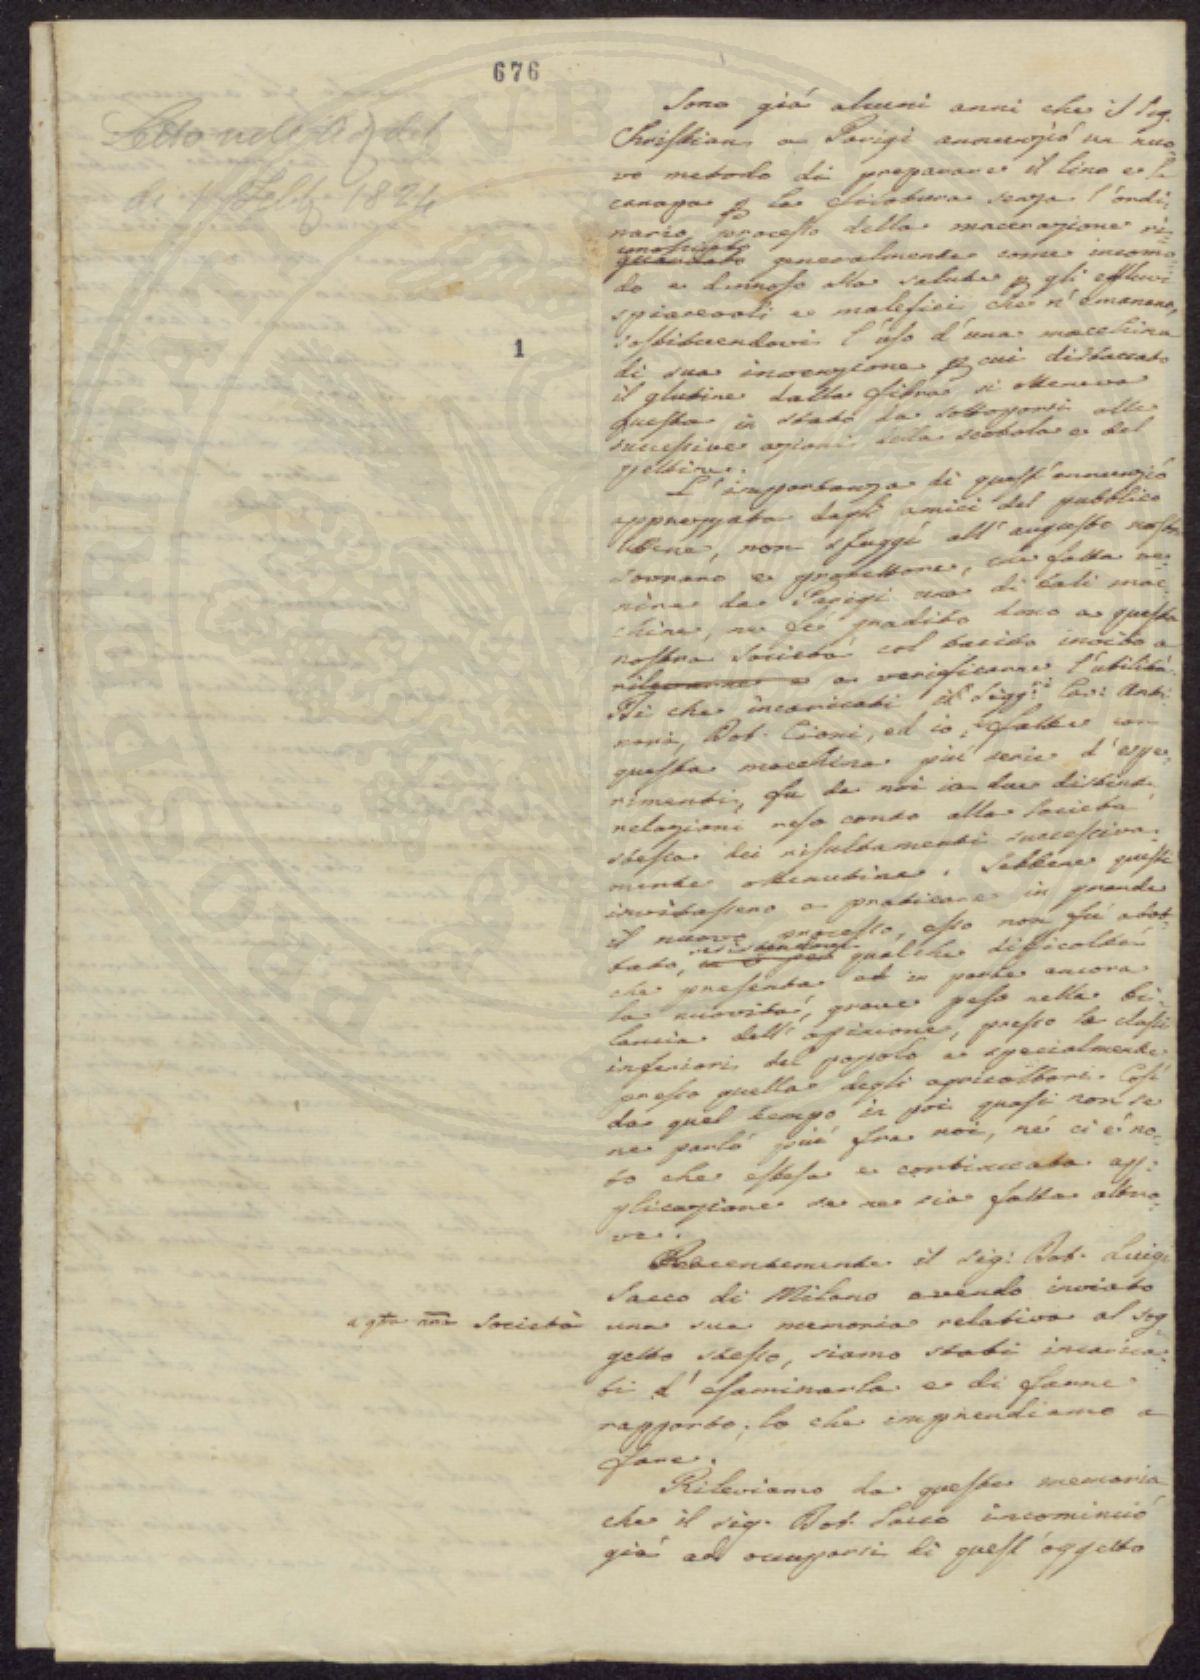 676
Letto nell'
di 1 Febb. 1824
1
Sono giá alcuni anni che il Sig.
Christian a Parigi annunziò un nuo=
vo metodo di preparare il lino e la
canapa p la filatura senza l'ordi=
nario processo della macerazione ri=
conosciuto
guardato generalmente come incomo=
do e dannoso alla salute p gli effluvi
spiacevoli e malefici che n'emanano,
sostituendovi l'uso d'una macchina
di sua invenzione p cui distaccato
il glutine dalla fibra si otteneva
questa in stato da sottoporsi alle
successive azioni della scotola e del
pettine.
L'importanza di quest'annunziò
apprezzata dagli amici del pubblico
bene, non sfuggí all'augusto nostro
sovrano e protettore, che fatta ve=
nire da Parigi una di tali mac=
chine, ne fé gradito dono a questa
nostra Società col tacito invito a
rilevarne e a verificarne l'utilità.
Di che incaricati i Sigg.ri Cav: Anti=
nori, Dot. Cioni, ed io, fatte con
questa macchina piú serie d'espe=
rimenti, fu da noi in due distinte
relazioni reso conto alla Società
stessa dei risultamenti successiva=
mente ottenutine. Sebbene questi
invitassero a praticare in grande
il nuovo processo, esso non fú adot=
tato, qualche difficoltà
che presenta ed in parte ancora
la novità, grave peso nella bi=
lancia dell'opinione, presso le classi
inferiori del popolo e specialmente
presso quella degli agricoltori. Cosí
da quel tempo in poi quasi non se
ne parló piú fra noi, né ci é no=
to che estesa e continuata ap=
plicazione se ne sia fatta altro=
ve.
Recentemente il sig: Dot. Luigi
Sacco di Milano avendo inviato
a qta nra Società
una sua memoria relativa al sog=
getto stesso, siamo stati incarica=
ti d'esaminarla e di farne
rapporto, lo che imprendiamo a
fare.
Rileviamo da questa memoria
che il sig. Dot. Sacco incominciò
giá ad occuparsi di quest'oggetto